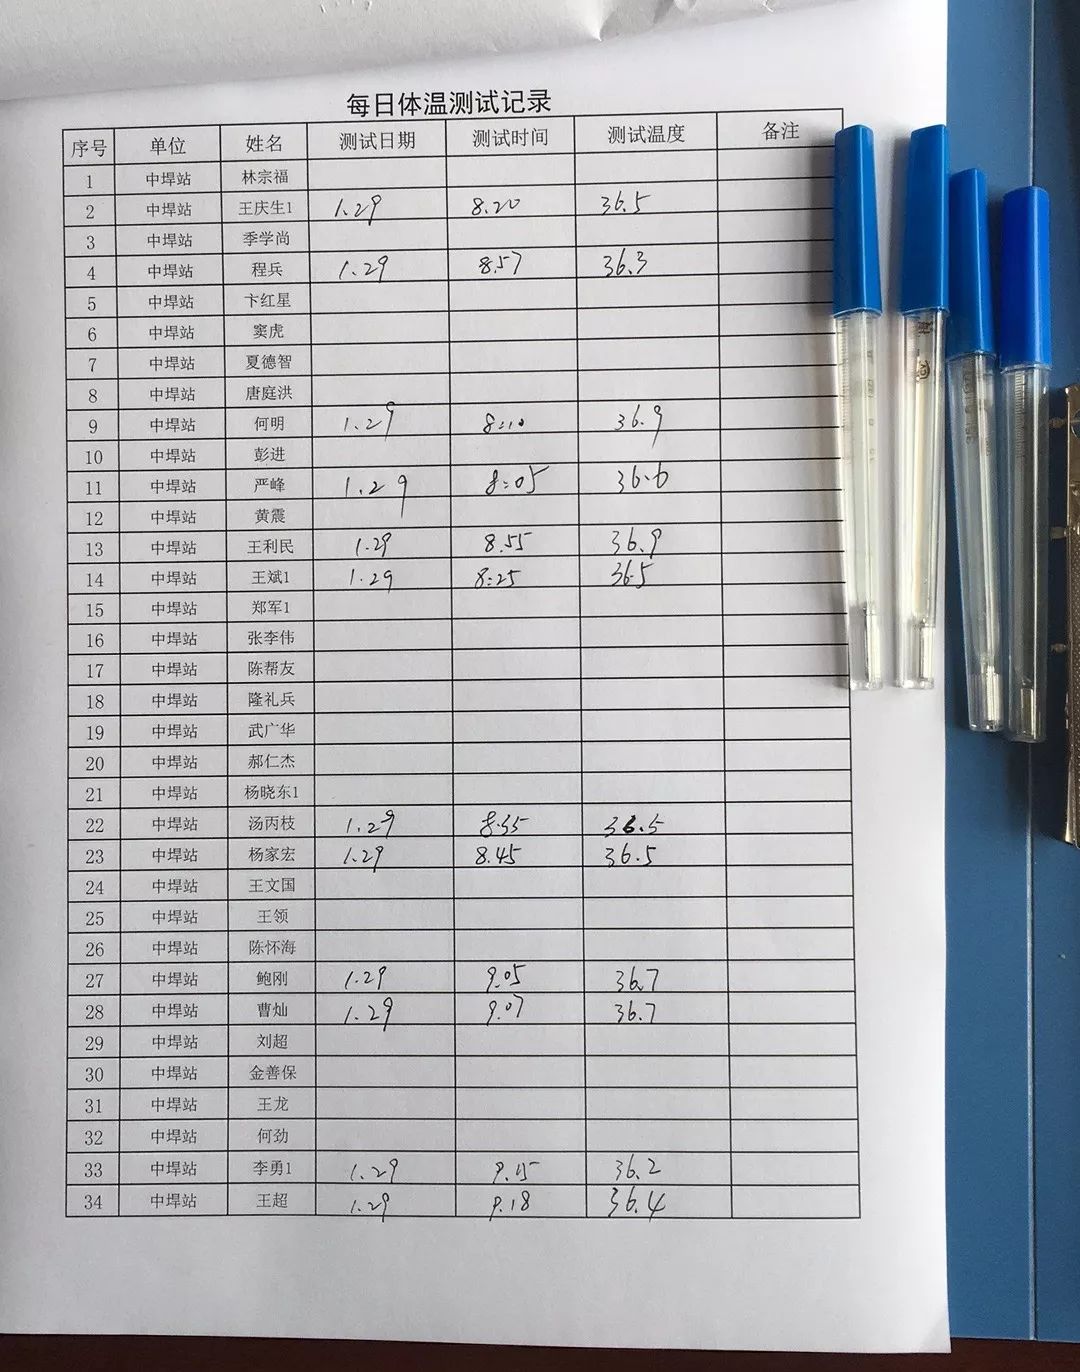 每日体温测试记录
序号 单位 姓名 测试日期 测试时间 测试温度 备注
1 中垾站 林宗福
2 中垾站 王庆生1 1.29 8.20 36.5
3 中垾站 季学尚
4 中垾站 程兵 1.29 8.57 36.3
5 中垾站 卞红星
6 中垾站 窦虎
7 中垾站 夏德智
8 中垾站 唐庭洪
9 中垾站 何明 1.29 8:10 36.9
10 中垾站 彭进
11 中垾站 严峰 1.29 8:05 36.6
12 中垾站 黄震
13 中垾站 王利民 1.29 8.55 36.9
14 中垾站 王斌1 1.29 8:25 36.5
15 中垾站 郑军1
16 中垾站 张李伟
17 中垾站 陈帮友
18 中垾站 隆礼兵
19 中垾站 武广华
20 中垾站 郝仁杰
21 中垾站 杨晓东1
22 中垾站 汤丙枝 1.29 8.35 36.5
23 中垾站 杨家宏 1.29 8.45 36.5
24 中垾站 王文国
25 中垾站 王领
26 中垾站 陈怀海
27 中垾站 鲍刚 1.29 9.05 36.7
28 中垾站 曹灿 1.29 9.07 36.7
29 中垾站 刘超
30 中垾站 金善保
31 中垾站 王龙
32 中垾站 何劲
33 中垾站 李勇1 1.29 9.15 36.2
34 中垾站 王超 1.29 9.18 36.4